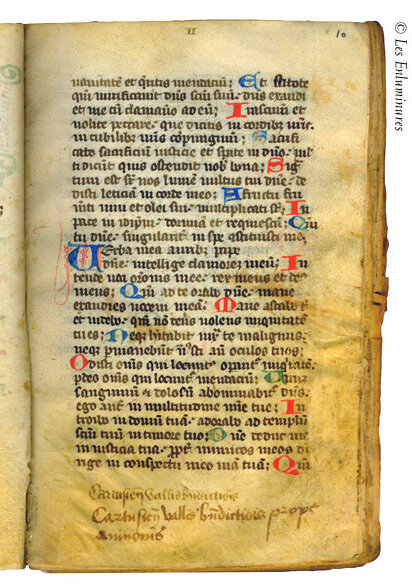 © Les Enluminures
II
10
uanitatē et q̄ritis mendaciū; Et scitote
qm̄ mirificauit dn̄s scm̄ suū· dn̄s exaudi
et me cū clamauo ad eū; Irascimī et
nolite peccare· que dicitis in cordib; ur̄is·
in cubilib; ur̄is cōpungimī; Sacrifi
cate sacrificiū iusticie et sperate in dn̄o· ml̄
ti dicūt quis ostendit nob̄ bona; Sig̅
tum est sr̄ nos lumē uultus tui dn̄e· de
disti leticiā in corde meo; A fructu fru
mēti uini et olei sui· multiplicati st̄; In
pace in idip̄m· dormiā et requiescā; Qm̄
tu dn̄e· singularit̄ in spe ꝯstituisti me·
Uerba mea aurib; ꝑcipe
dn̄e· intellige clamorē meū; In
tende uoci or̄onis mee· rex meus et deus
meus; Qm̄ ad te orabo dn̄e· mane
exaudies uocem meā; Mane astabo t̄
et uidebo· qm̄ nō deus uolens iniquitatē
tu es; Neq; hītabit te malignus·
neq; ꝑmanebūt an̄ oculos tuos;
Odisti om̄s qui oꝑant̄ iniq̇tatē·
ꝑdes om̄s qui locunt̄ mendaciū; Uirū
sanguinū et dolosū abominabit̄ dn̄s·
ego aut̄ in multitudine mīe tue; In
troibo in domū tuā· adorabo ad templū
scm̄ tuū in timore tuo; Dn̄e deduc me
in iusticia tua· ꝓpt̄ inimicos meos di
rige in conspectu meo uiā tuā; Qm̄
Cartusien̄ vallis bn̄dictionis
Cartusien̄ vallis bn̄dictionis prope
Auinionis